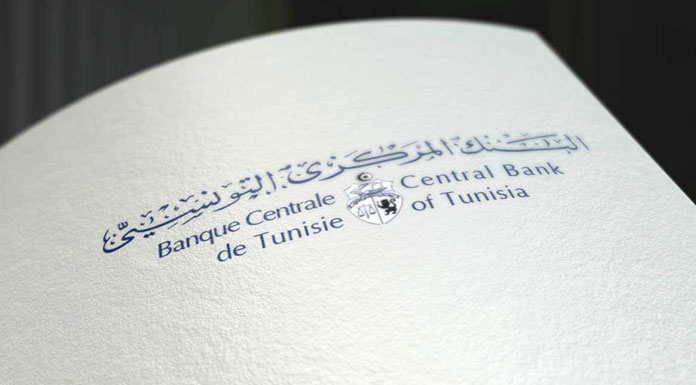 البنك المركزي التونسي
Banque Centrale
de Tunisie
Central Bank
of Tunisia